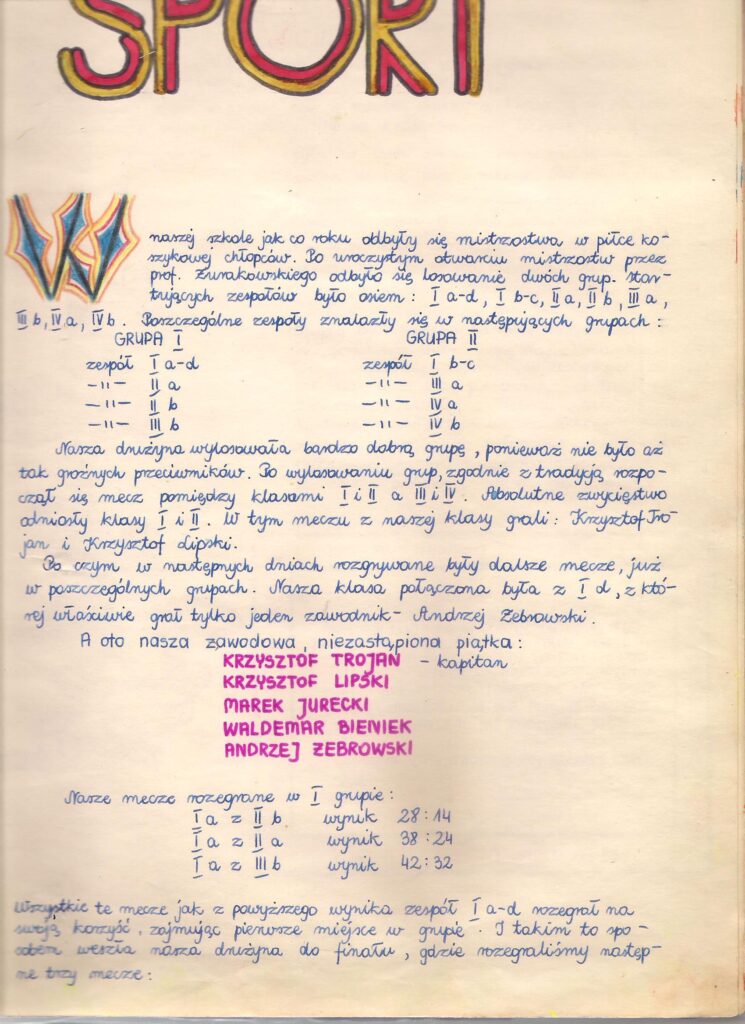 SPORT
W naszej szkole jak co roku odbyły się mistrzostwa w piłce ko-
szykowej chłopców. Po uroczystym otwarciu mistrzostw przez
prof. Żurakowskiego odbyło się losowanie dwóch grup. Star-
tujących zespołów było osiem: I a-d, I b-c, II a, II b, III a,
III b, IV a, IV b. Poszczególne zespoły znalazły się w następujących grupach:
GRUPA I GRUPA II
zespół I a-d zespół I b-c
–"– II a –"– III a
–"– II b –"– IV a
–"– III b –"– IV b
Nasza drużyna wylosowała bardzo dobrą grupę, ponieważ nie było aż
tak groźnych przeciwników. Po wylosowaniu grup, zgodnie z tradycją rozpo-
czął się mecz pomiędzy klasami I i II a III i IV. Absolutne zwycięstwo
odniosły klasy I i II. W tym meczu z naszej klasy grali: Krzysztof Tro-
jan i Krzysztof Lipski.
Po czym w następnych dniach rozgrywane były dalsze mecze, już
w poszczególnych grupach. Nasza klasa połączona była z I d, z któ-
rej właściwie grał tylko jeden zawodnik - Andrzej Żebrowski.
A oto nasza zawodowa, niezastąpiona piątka:
KRZYSZTOF TROJAN - kapitan
KRZYSZTOF LIPSKI
MAREK JURECKI
WALDEMAR BIENIEK
ANDRZEJ ŻEBROWSKI
Nasze mecze rozegrane w I grupie:
I a z II b wynik 28:14
I a z II a wynik 38:24
I a z III b wynik 42:32
Wszystkie te mecze jak z powyższego wynika zespół I a-d rozegrał na
swoją korzyść, zajmując pierwsze miejsce w grupie. I takim to spo-
sobem weszła nasza drużyna do finału, gdzie rozegraliśmy następ-
ne trzy mecze: